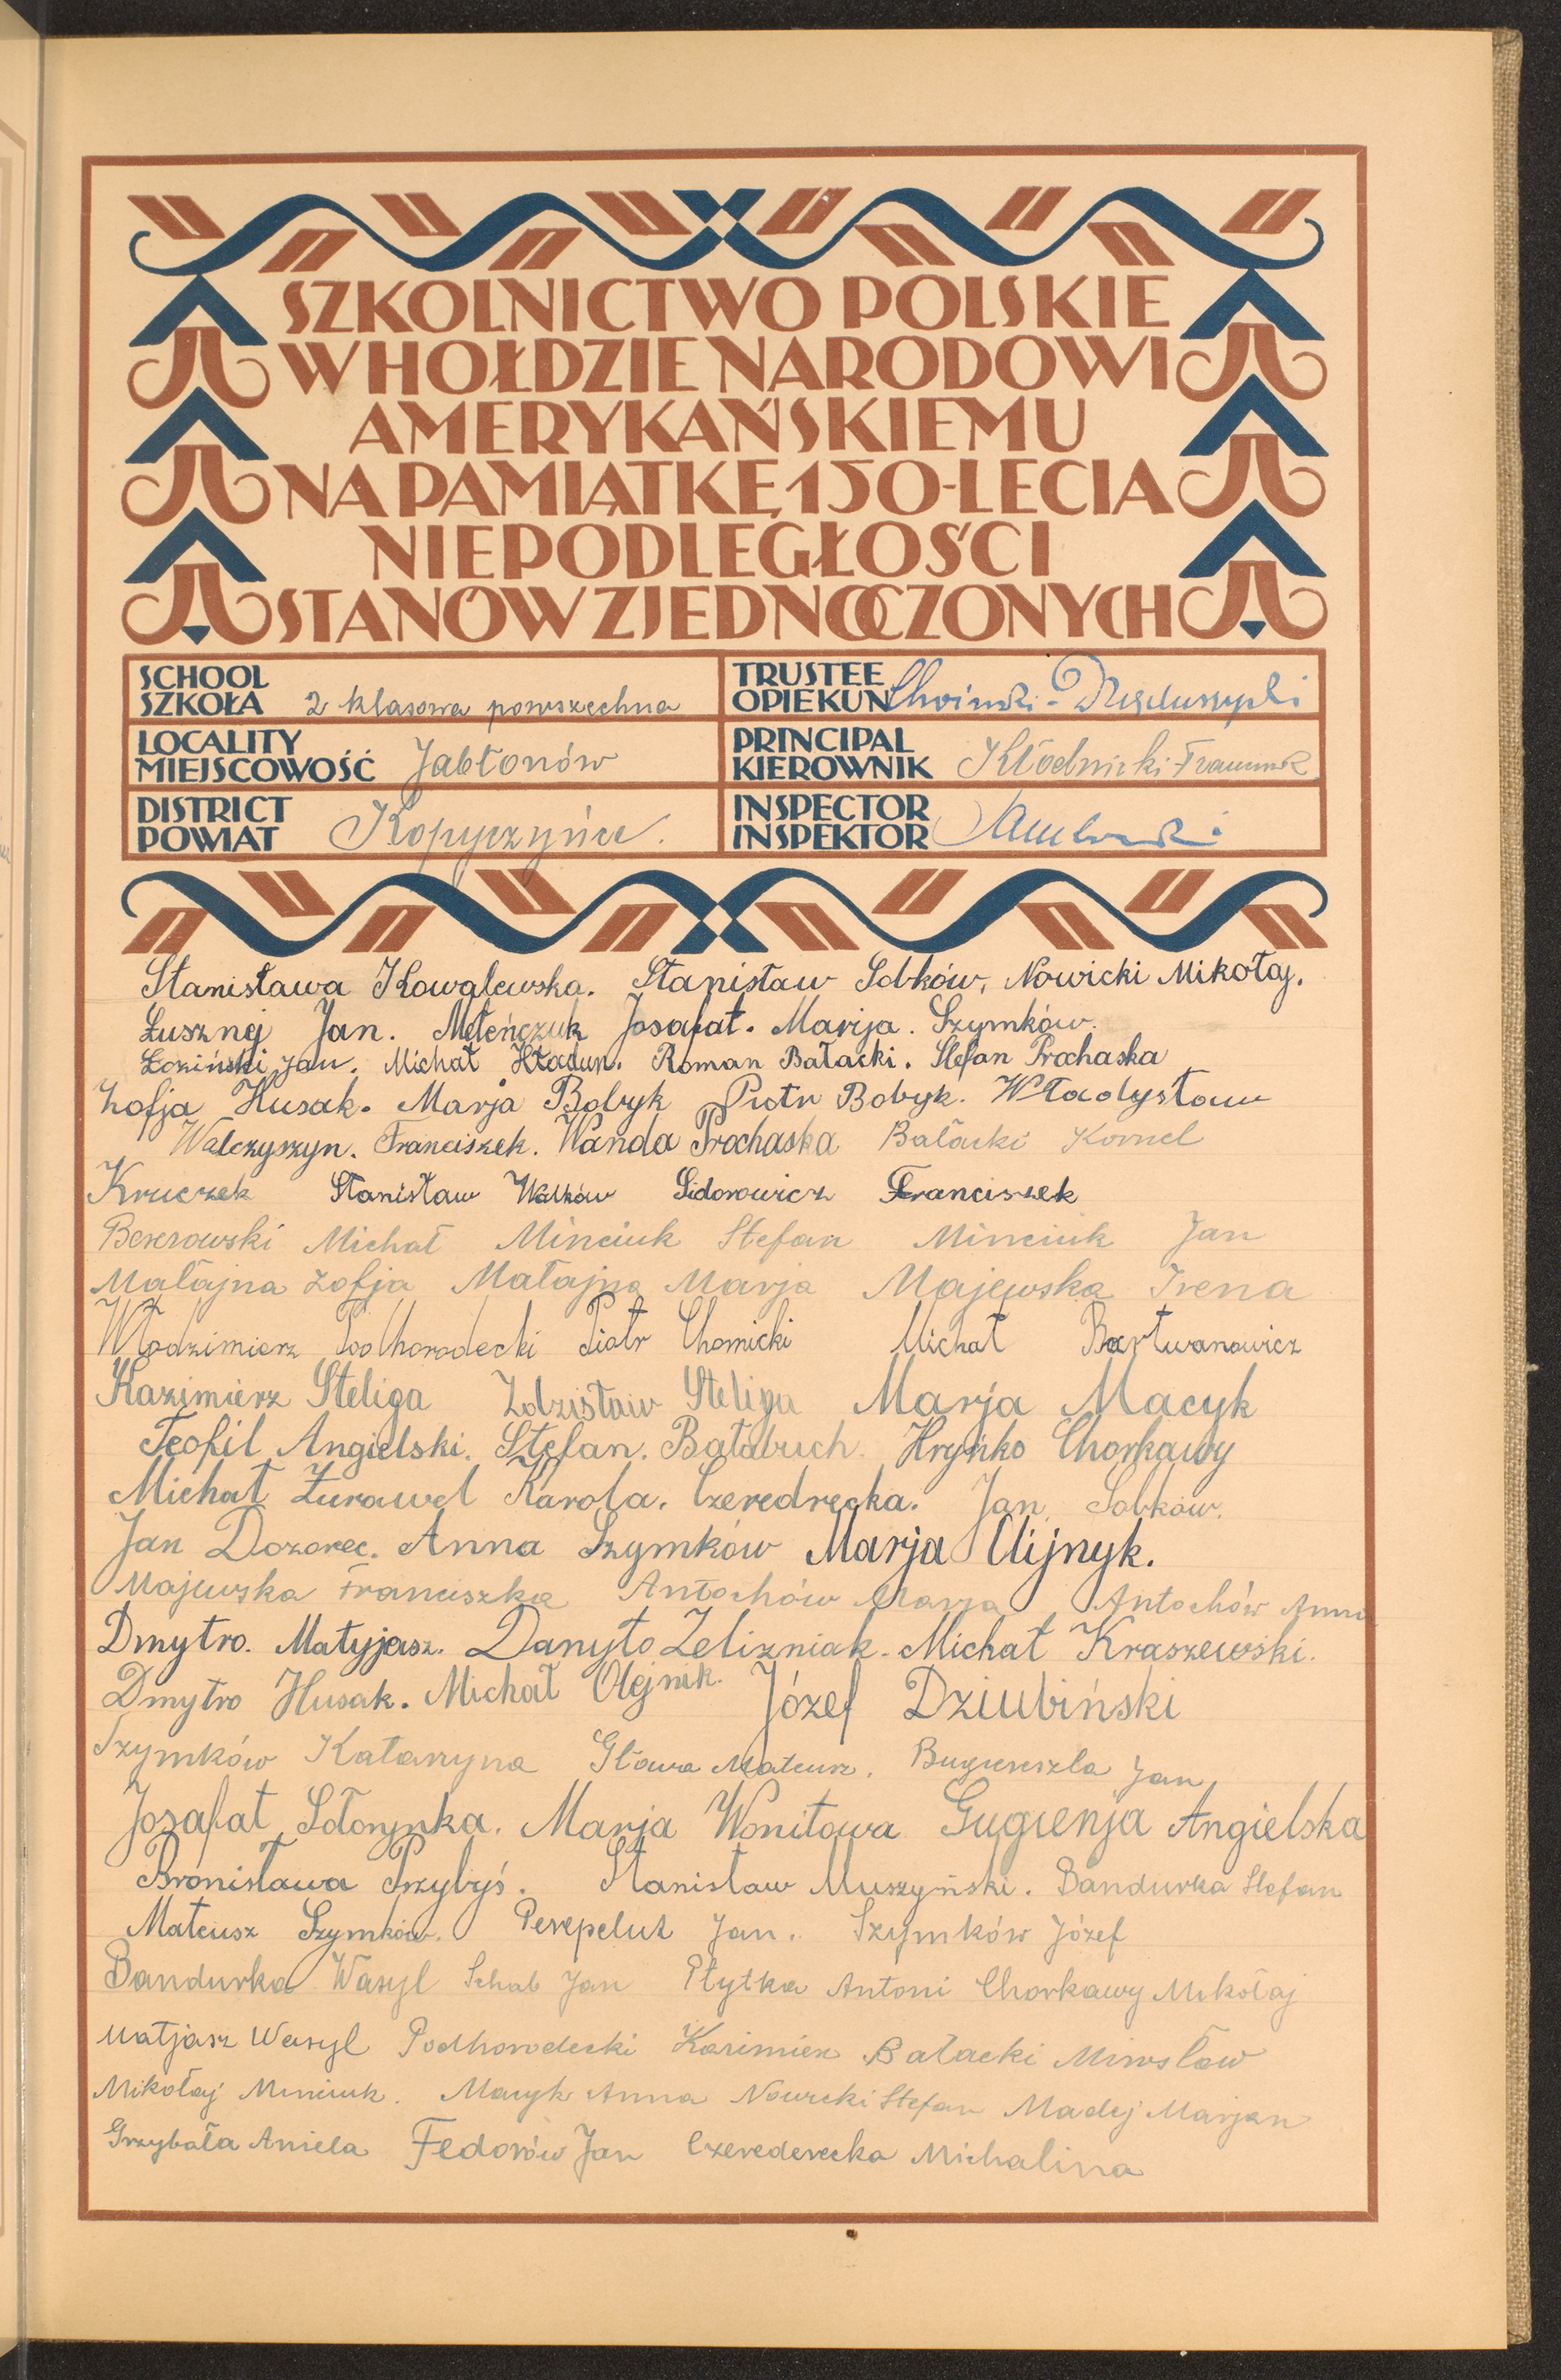 SZKOLNICTWO POLSKIE
W HOŁDZIE NARODOWI
AMERYKAŃSKIEMU
NA PAMIĄTKĘ 150-LECIA
NIEPODLEGŁOŚCI
STANÓW ZJEDNOCZONYCH
SCHOOL
SZKOŁA 2 klasowa powszechna
TRUSTEE
OPIEKUN
LOCALITY
MIEJSCOWOŚĆ Jabłonów
PRINCIPAL
KIEROWNIK Kłodnicki Franciszek
DISTRICT
POWIAT Kopyczyńce.
INSPECTOR
INSPEKTOR
Stanisława Kowalewska. Stanisław Sobków. Nowicki Mikołaj.
Łusznej Jan. Mełeńczuk Josafat. Marija. Szymków.
Łoziński Jan. Michał Hładun. Roman Bałacki. Stefan Prochaska
Zofja Husak. Marja Bobyk Piotr Bobyk. Władysław
Walczyszyn. Franciszek. Wanda Prochaska Bałacki Kornel
Kruczek Stanisław Walków Sidorowicz Franciszek
Bezerowski Michał Minciuk Stefan Minciuk Jan
Małajna Zofja Małajna Marja Majewska Irena
Włodzimierz Podhorodecki Piotr Chomicki Michał Bartwanowicz
Kazimierz Steliga Zdzisław Steliga Marja Macyk
Teofil Angielski. Stefan. Bałabuch. Hryńko Chorkawy
Michał Żurawel Karola. Czeredrecka. Jan Sobków.
Jan Dozorec. Anna Szymków Marja Olijnyk.
Majewska Franciszka Antochów Marja Antochów Anna
Dmytro. Matyjasz. Danyło Zelizniak. Michał Kraszewski.
Dmytro Husak. Michał Olejnik. Józef Dziubiński
Szymków Katarzyna Głowa Mateusz. Jan
Josafat Sołorynka. Marja Wonitowa Gugienja Angielska
Bronisława Przybyś. Stanisław Muszyński. Bandurka Stefan
Mateusz Szymków. Perepeluk Jan. Szymków Józef
Bandurka Wasyl Schab Jan Płytka Antoni Chorkawy Mikołaj
Matjasz Wasyl Podhorodecki Kazimierz Bałacki Mirosław
Mikołaj Minciuk. Macyk Anna Nowicki Stefan Madej Marjan
Grzybała Aniela Fedorów Jan Czerederecka Michalina